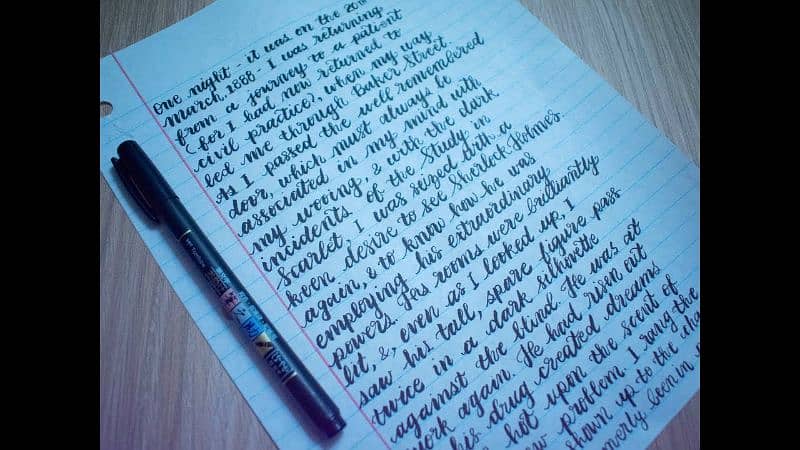 One night - it was on the 20th
March, 1888 - I was returning
from a journey to a patient
(for I had now returned to
civil practice), when my way
led me through Baker Street.
As I passed the well remembered
door, which must always be
associated in my mind with
my wooing & with the dark
incidents of the Study in
Scarlet, I was seized with a
keen desire to see Sherlock Holmes
again, & to know how he was
employing his extraordinary
powers. His rooms were brilliantly
lit, &, even as I looked up, I
saw his tall, spare figure pass
twice in a dark silhouette
against the blind. He was at
work again. He had risen out
his drug created dreams
hot upon the scent of
problem. I rang the
shown up to the cha
merly been in